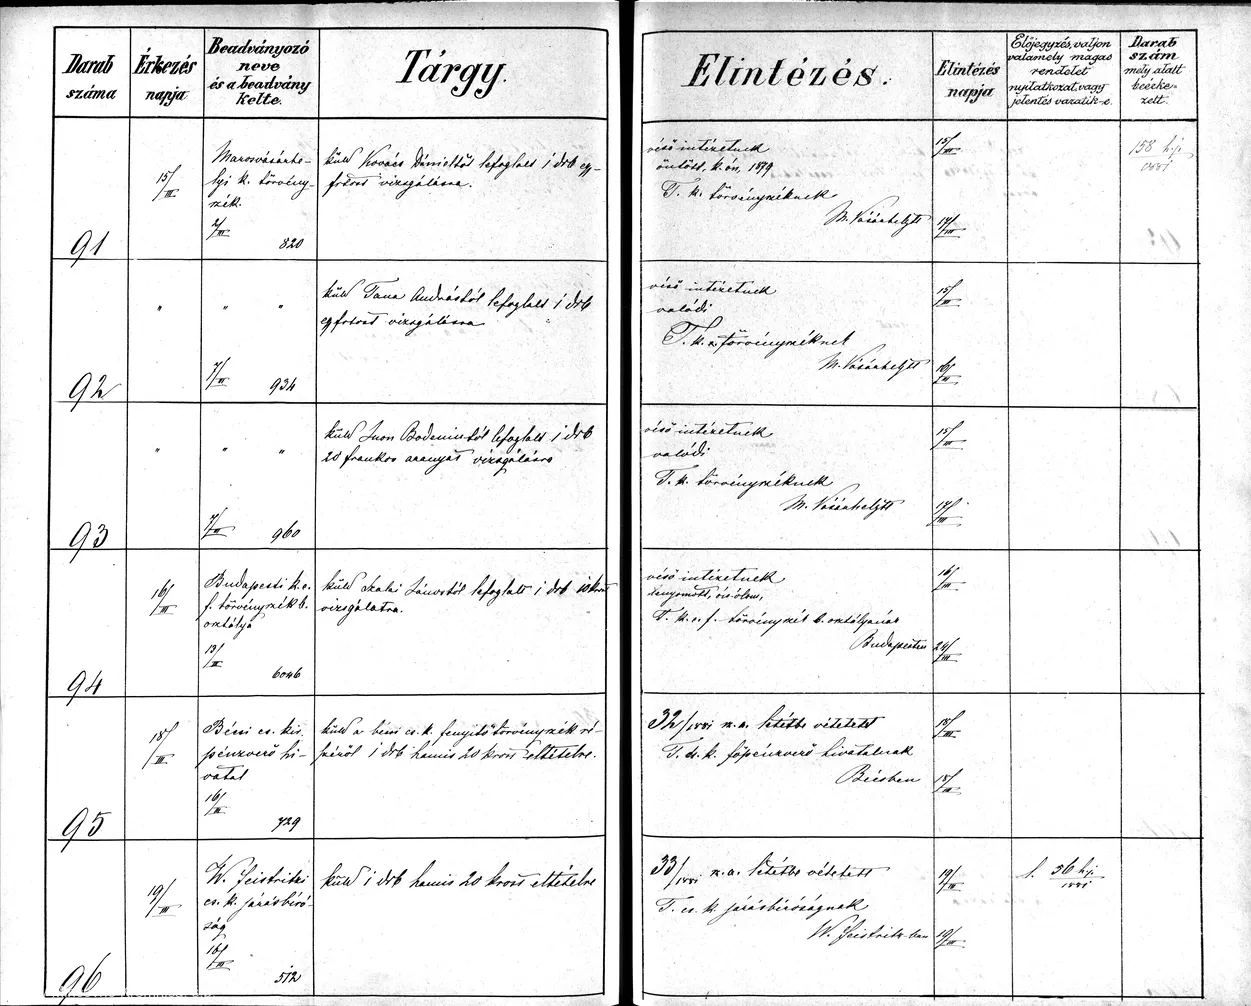 Darab száma
Érkezés napja
Beadványozó neve és a beadvány kelte.
Tárgy.
Elintézés.
Elintézés napja
Előjegyzés, valjon valamely magas rendelet nyilatkozat, vagy jelentés váratik-e.
Darab szám mely alatt beérkezett.
91
15/III
Marosvásárhe-
lyi k. törvény-
szék.
2/III
820
küld Kovács Dánieltől lefoglalt 1 drb egy-
frtost vizsgálásra.
véső intézetnek
öntött, k. ón, 1879
T. k. törvényszéknek
M. Vásárhelytt
15/III
17/III
158 h.j.
1881
92
" " "
7/III
934
küld Tana Andrástól lefoglalt 1 drb
egyfrtost vizsgálásra
véső intézetnek
valódi
T. k. törvényszéknek
M. Vásárhelytt
15/III
16/III
93
" " "
7/III
960
küld Juon Bodemistől lefoglalt 1 drb
20 frankos aranyat vizsgálásra
véső intézetnek
valódi
T. k. törvényszéknek
M. Vásárhelytt
15/III
17/III
94
16/III
Budapesti k. e.
f. törvényszék b.
osztálya
13/III
6046
küld Szalai Jánostól lefoglalt 1 drb 10 krost
vizsgálatra.
véső intézetnek
T. k. e. f. törvényszék b. osztályának
Budapesten
16/III
24/III
95
18/III
Bécsi cs. kir.
pénzverő hi-
vatal
16/III
729
küld a bécsi cs. k. fenyitő törvényszék ré-
széről 1 drb hamis 20 krost eltételre.
32/1881 sz. a. letétbe vétetett
T. cs. k. főpénzverő hivatalnak
Bécsben
18/III
18/III
96
19/III
W. Feistritzi
cs. k. járásbiró-
ság
16/III
512
küld 1 drb hamis 20 krost eltételre
33/1881 sz. a. letétbe vétetett
T. cs. k. járásbiróságnak
W. Feistritz-ban
19/III
19/III
l. 56 h.j.
1881